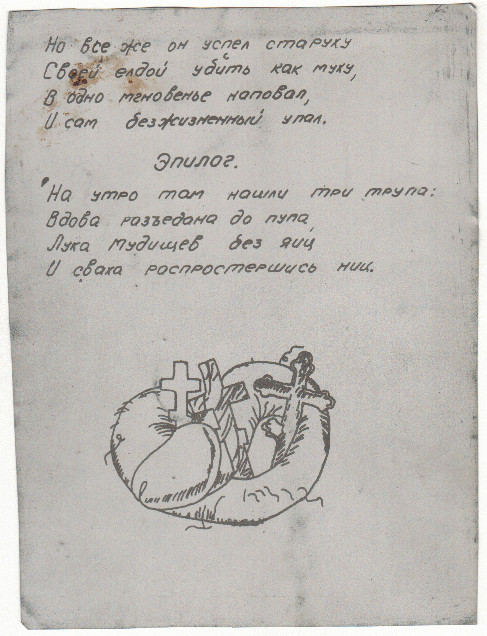 Но все же он успел старуху
Своей елдой убить как муху,
В одно мгновенье наповал,
И сам безжизненный упал.
Эпилог.
На утро там нашли три трупа:
Вдова разъедана до пупа,
Лука Мудищев без яиц
И сваха распростершись ниц.